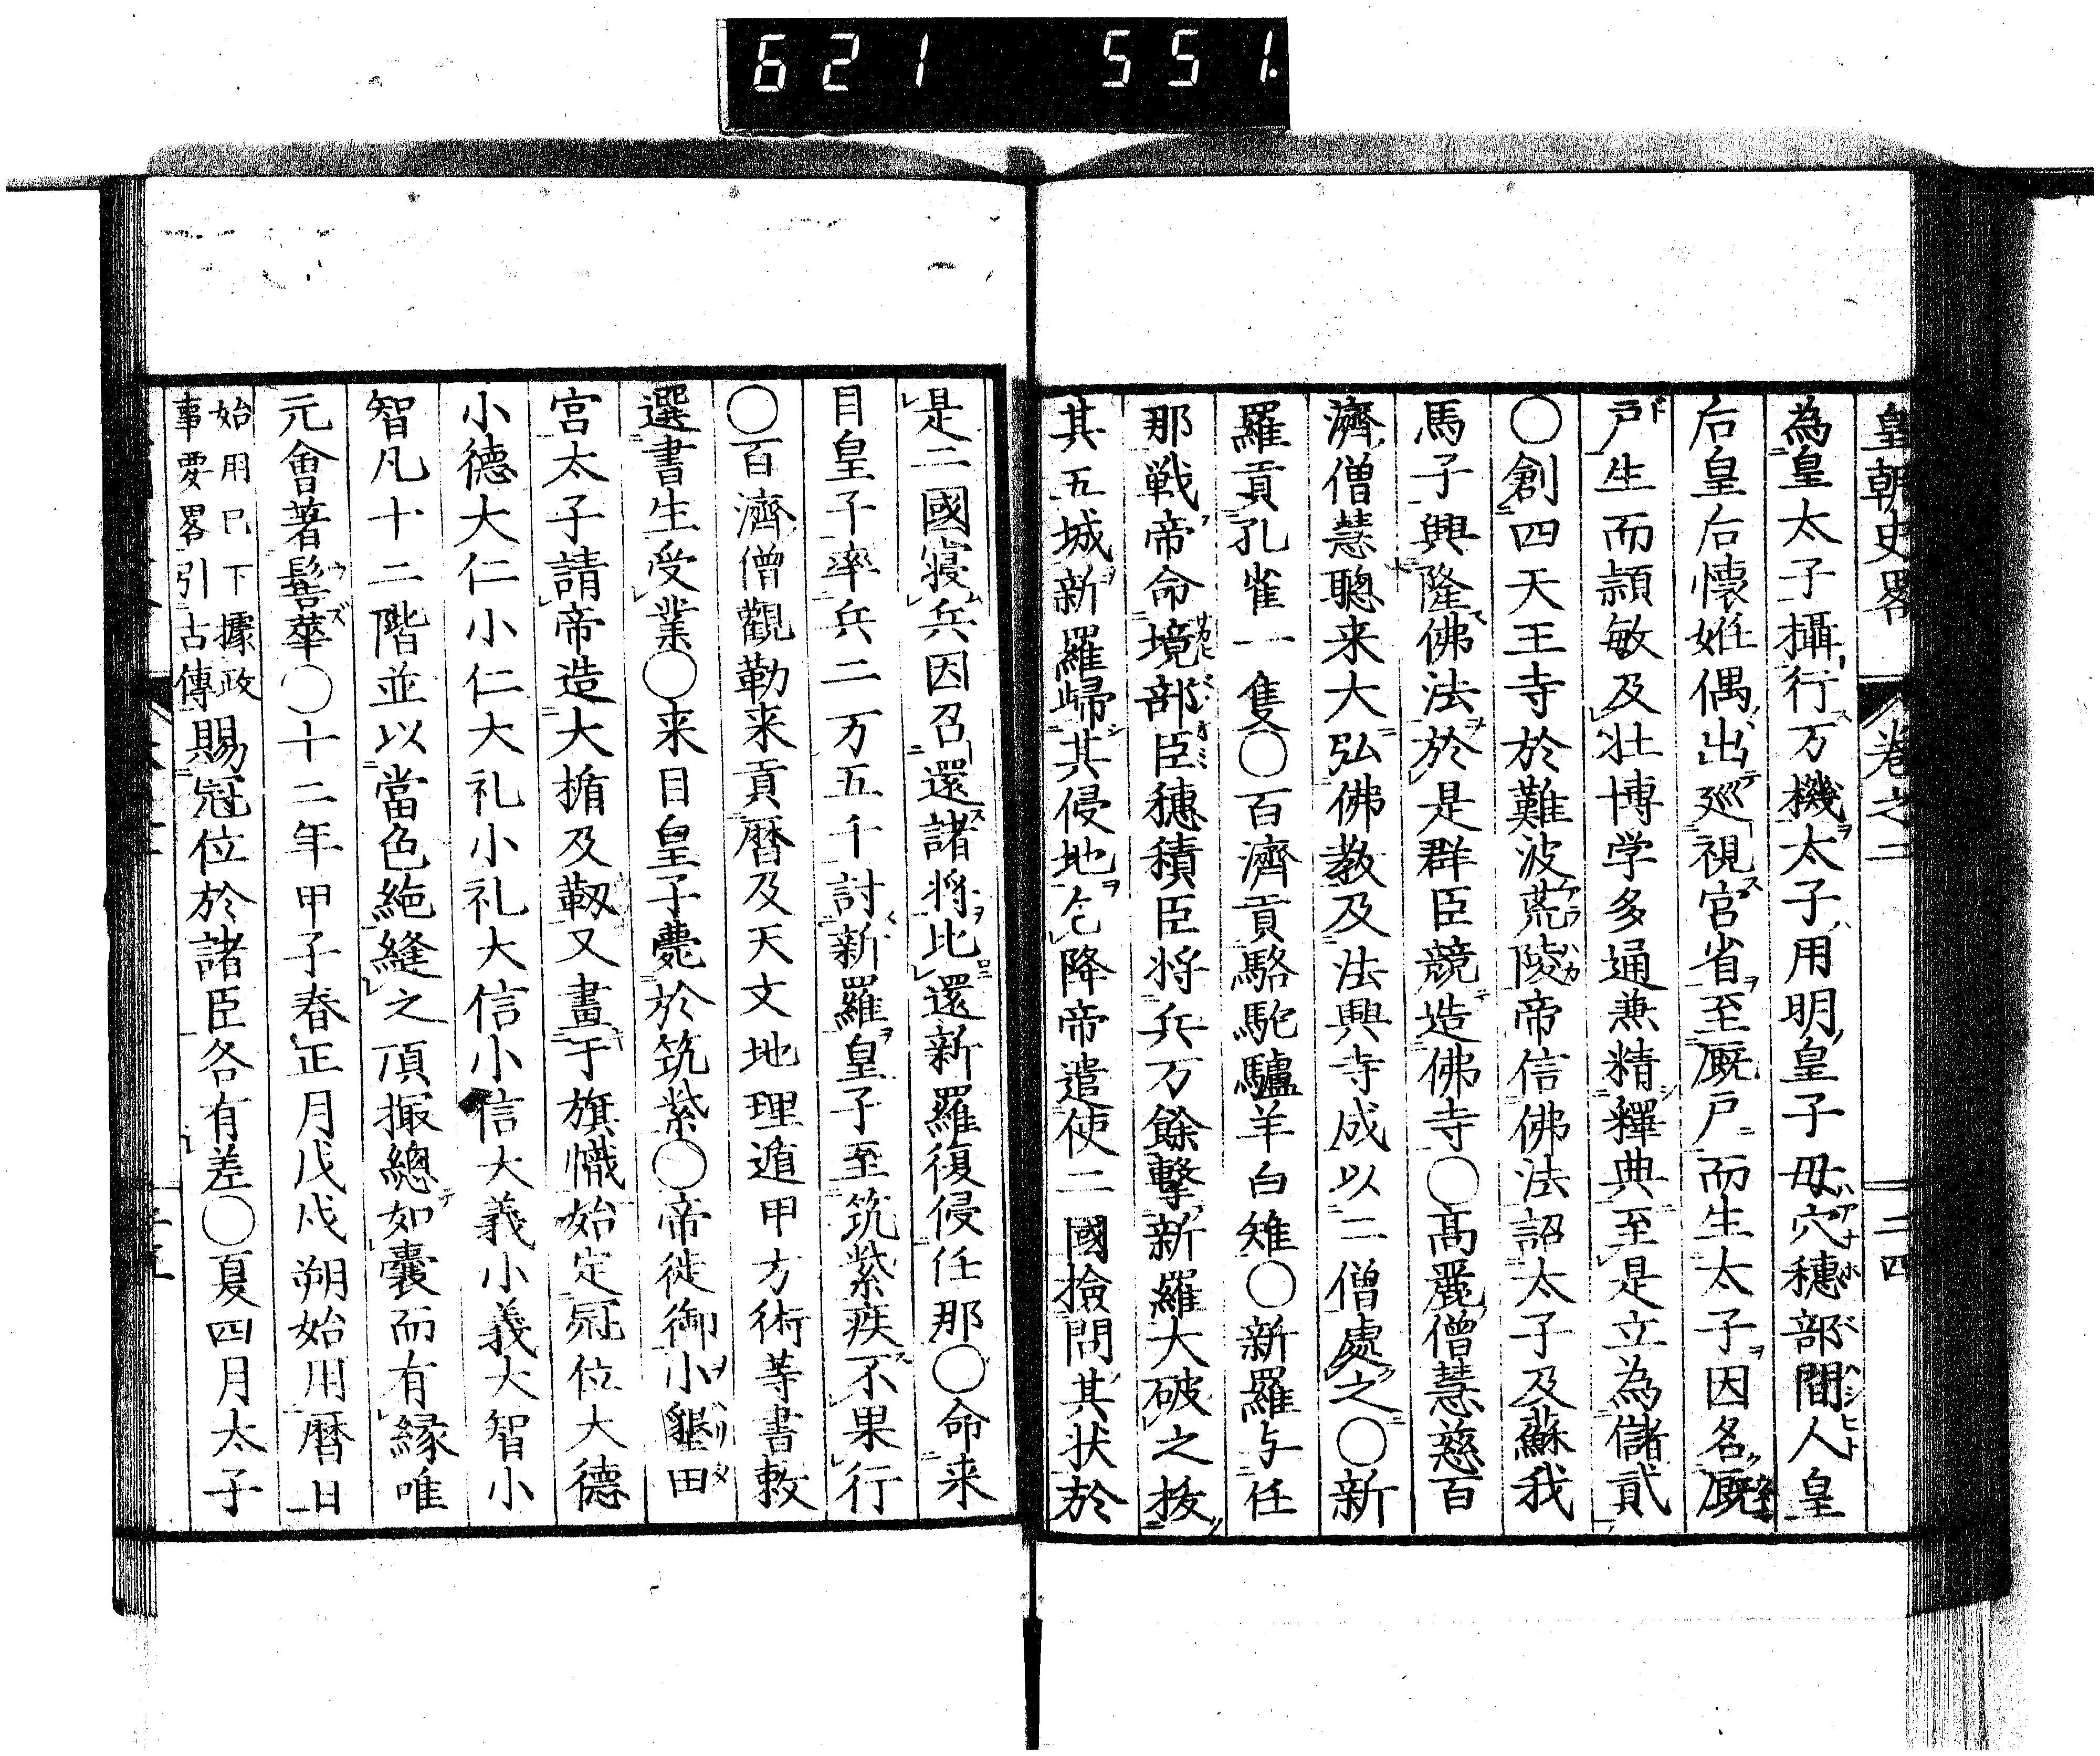 621 551.
皇朝史畧 卷之二 二四
為皇太子攝行万機太子用明皇子母穴穗部間人皇
后皇后懐姙偶出廵視宮省至厩戸而生太子因名厩
戸生而頴敏及壮博学多通兼精釋典至是立為儲貳
〇創四天王寺於難波荒陵帝信佛法詔太子及蘇我
馬子興隆佛法於是群臣競造佛寺〇髙麗僧慧慈百
濟僧慧聰来大弘佛教及法興寺成以二僧處之〇新
羅貢孔雀一隻〇百濟貢駱駝驢羊白雉〇新羅与任
那戦帝命境部臣穗積臣将兵万餘擊新羅大破之抜
其五城新羅歸其侵地乞降帝遣使二國撿問其状於
是二國寝兵因召還諸将比還新羅復侵任那〇命来
目皇子率兵二万五千討新羅皇子至筑紫疾不果行
〇百濟僧觀勒来貢暦及天文地理遁甲方術等書敕
選書生受業〇来目皇子薨於筑紫〇帝徙御小墾田
宮太子請帝造大楯及靫又畫于旗幟始定冠位大德
小德大仁小仁大礼小礼大信小信大義小義大智小
智凡十二階並以當色絁縫之頂撮總如囊而有縁唯
元會著髻華〇十二年甲子春正月戊戌朔始用暦日
始用已下據政
事要畧引古傳
賜冠位於諸臣各有差〇夏四月太子